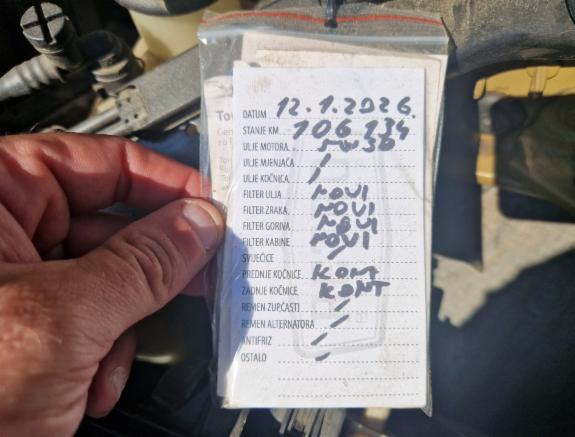 DATUM 12.1.2026.
STANJE KM. 106 134
ULJE MOTORA 5W30
ULJE MJENJAČA /
ULJE KOČNICA /
FILTER ULJA NOVI
FILTER ZRAKA NOVI
FILTER GORIVA NOVI
FILTER KABINE NOVI
SVIJEĆICE /
PREDNJE KOČNICE KONT
ZADNJE KOČNICE KONT
REMEN ZUPČASTI /
REMEN ALTERNATORA /
ANTIFRIZ /
OSTALO /